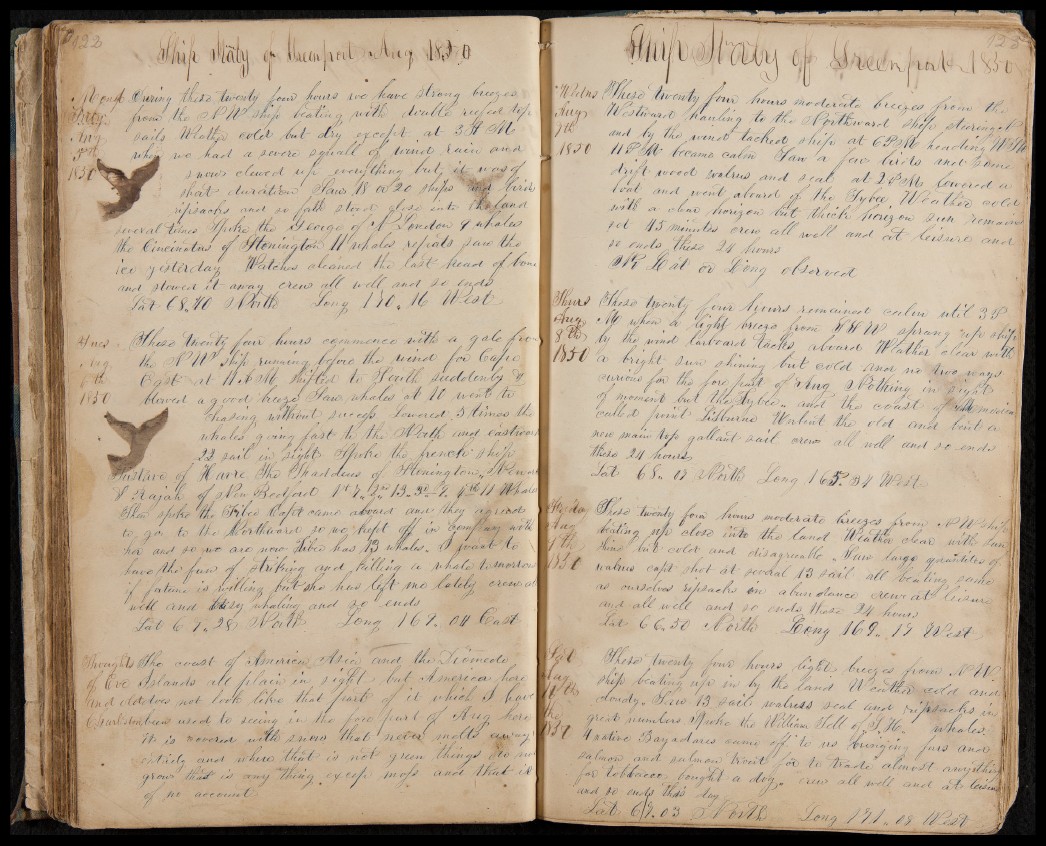 122
Ship Italy of Greenport Aug 1850
During these twenty four hours we have strong breezes
from the N W ship beating with double reefed top
sails Weather cold but dry except at 3 P M
when we had a severe squall of wind rain and
snow clewed up everything but it was of
short duration Saw 18 or 20 ships and birds
ripsacks and so forth stood close into the land
several times Spoke the George of N London 9 whales
the Cincinatus of Stonington 11 whales repeats saw the
ice yesterday Watches cleaned the last head of bone
and stowed it away crew all well and so ends
Lat 68,,40 North Long 170,,16 West
Tues
Aug
6th
1850
These twenty four hours commence with a gale from
the N W Ship running before the wind for Cape
East at 11 A M shifted to South suddenly &
blowed a good breeze Saw whales at 10 went to
chasing without success lowered 3 times the
whales going fast to the North and eastward
22 sail in sight Spoke the french ship
Gustave of Havre The Thaddeus of Stonington
Rajah of New Bedford
Then spoke the Tybee Capt came aboard and they agreed
to go to the Northward so we kept off in company with
her and so we are now Tibee has 13 whales. I want to
have the fun of striking and killing a whale tomorrow
if fatune is willing but she has left me lately crew all
well and whaling and so ends
Lat 67,,28 North Long 169,,04 East
Thoughts
of Eve
and old
Charleston
The coast of America Asia and the Diomede
Islands all plain in sight but America here
does not look like that part of it which I have
been used to seeing in the fore part of Aug here
it is covered with snow that never melts away
entirely and where that is not green things do not
grow that is any thing except moss and that is
of no account
Ship Italy of Greenport 1850
Wedns
Aug
7th
1850
These twenty four hours moderate breezes from the
Westward hauling to the Northward ship steering N
and by the wind tacked ship at 6 P M heading
11 P M became calm Saw a few birds and some
drift wood walrus and seal at 2 P M lowered a
boat and went aboard of the Tybee Weather cold
with a clear horizon but thick horizon sun remains
set 45 minutes crew all well and at leisure and
so ends these 24 hours
No Lat or Long observed
Thurs
Aug
8th
1850
These twenty four hours remained calm until 3 P
M when a light breeze from W N W sprang up ship
by the wind larboard tacks aboard Weather clear with
a bright sun shining but cold and no two ways
curious for the fore part of Aug Nothing in sight
of moment but the Tybee and the coast of
called point Lisburne Unbent the old and bent a
new main top gallant sail crew all well and so ends
these 24 hours
Lat 68,,08 North Long 165,,34 West
These twenty four hours moderate breezes from N W ship
beating up close into the land Weather clear with sun
shine but cold and disagreeable Saw large quantities of
walrus capt shot at several 13 sail all beating same
as ourselves ripsacks in abundance crew at leisure
and all well and so ends these 24 hours
Lat 66,,50 North Long 169,,17 West
These twenty four hours light breezes from N W
ship beating up in by the land Weather cold and
cloudy. Saw 13 sail walruss seal and ripsacks in
great numbers Spoke the William Tell of S.H. whales.
4 native Bayadares came off to us bringing furs and
salmon and salmon trout for to trade almost anything
for tobbacco bought a dog. crew all well and at leisure
and so ends this day
Lat 67,,03 North Long 171,,08 West